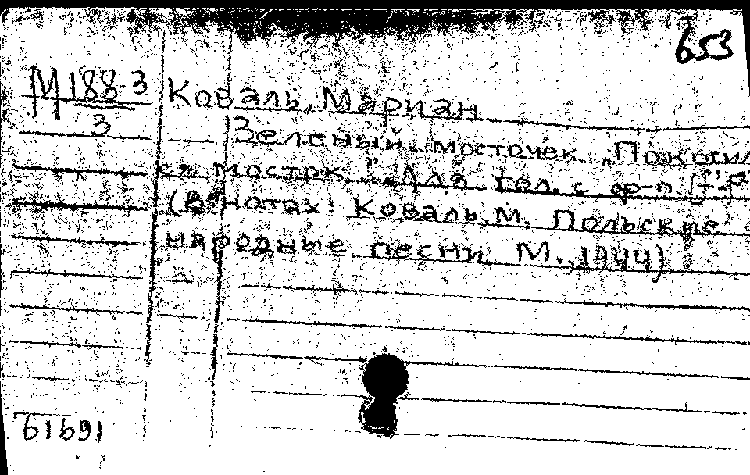 653
М188-3
3
Коваль, Мариан
Зеленый мосточек. „Покосил
ся мосток". Для гол. с ф-п.
(В нотах: Коваль, М. Польские
народные песни. М., 1944)
61691